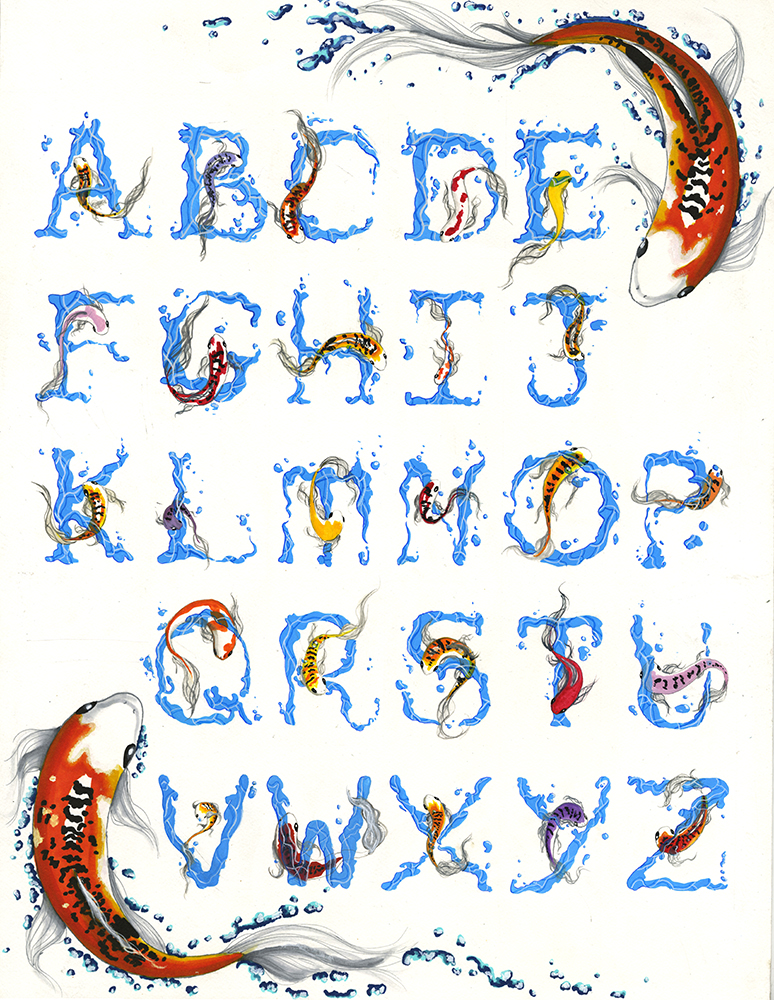 A B C D E
F G H I J
K L M N O P
Q R S T U
V W X Y Z